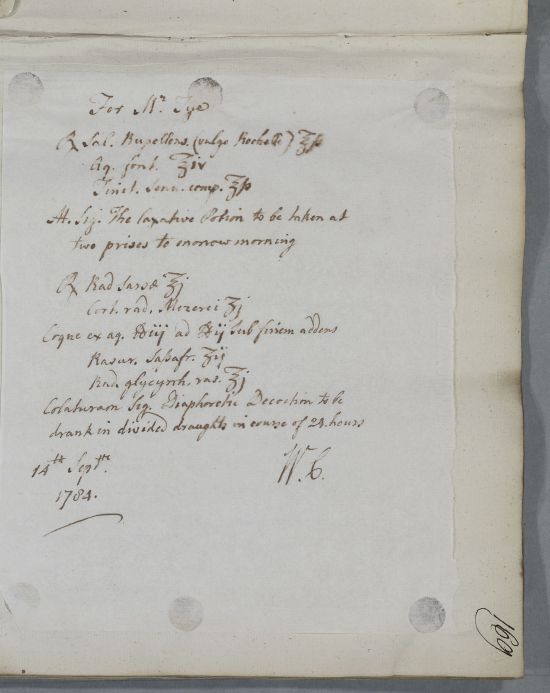 For Mr. Tye
℞ Sal. Rupellens. (vulgo Rochelle) ℥ß
Aq. font. ℥iv
Tinct. Senn. comp. ℥ß
M. Sig. The laxative Potion to be taken at
two prises to morrow morning
℞ Rad Sarsæ ℥j
Cort. rad. Mezerei ʒj
Coque ex aq. ℔iij ad ℔ij sub finem addens
Rasur. Sassafr. ʒij
Rad. glycyrrh. ras. ʒj
Colaturam Sig. Diaphoretic Decoction to be
drank in divided draughts in course of 24 hours
14th Septr.
W. C.
1784.
169